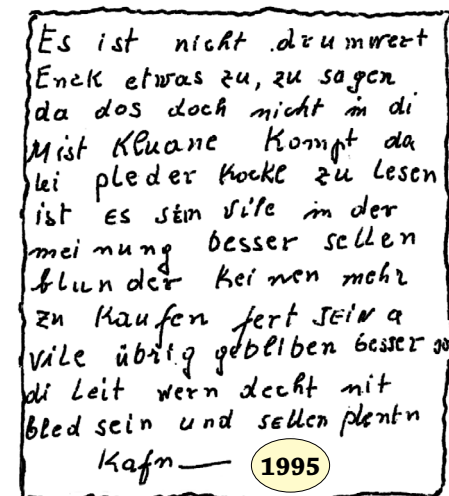 Es ist nicht drumwert
Enek etwas zu, zu sagen
da dos doch nicht in di
Mist Kluane Kompt da
lei pleder Kockl zu Lesen
ist Es sein Vile in der
mei nung besser sellen
blun der kei nen mehr
zu Kaufen fert SEIN a
vile übrig gebliben besser so
di Leit wern decht nit
bled sein und sellen plentn
Kafn—
1995